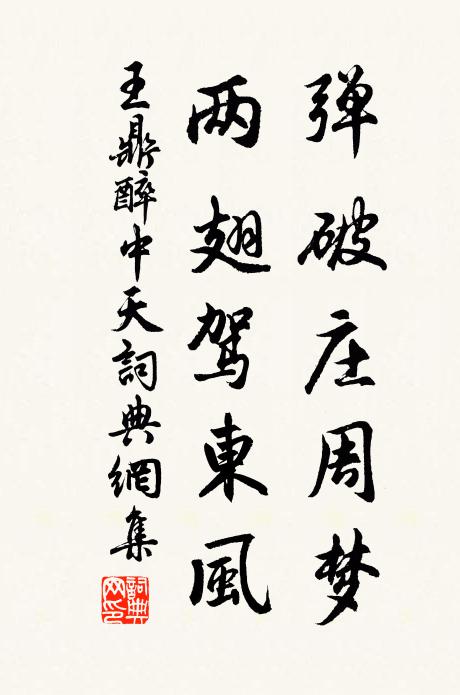 弹破庄周梦
两翅驾東風
王鼎醉中天詞典網集
詞典网印